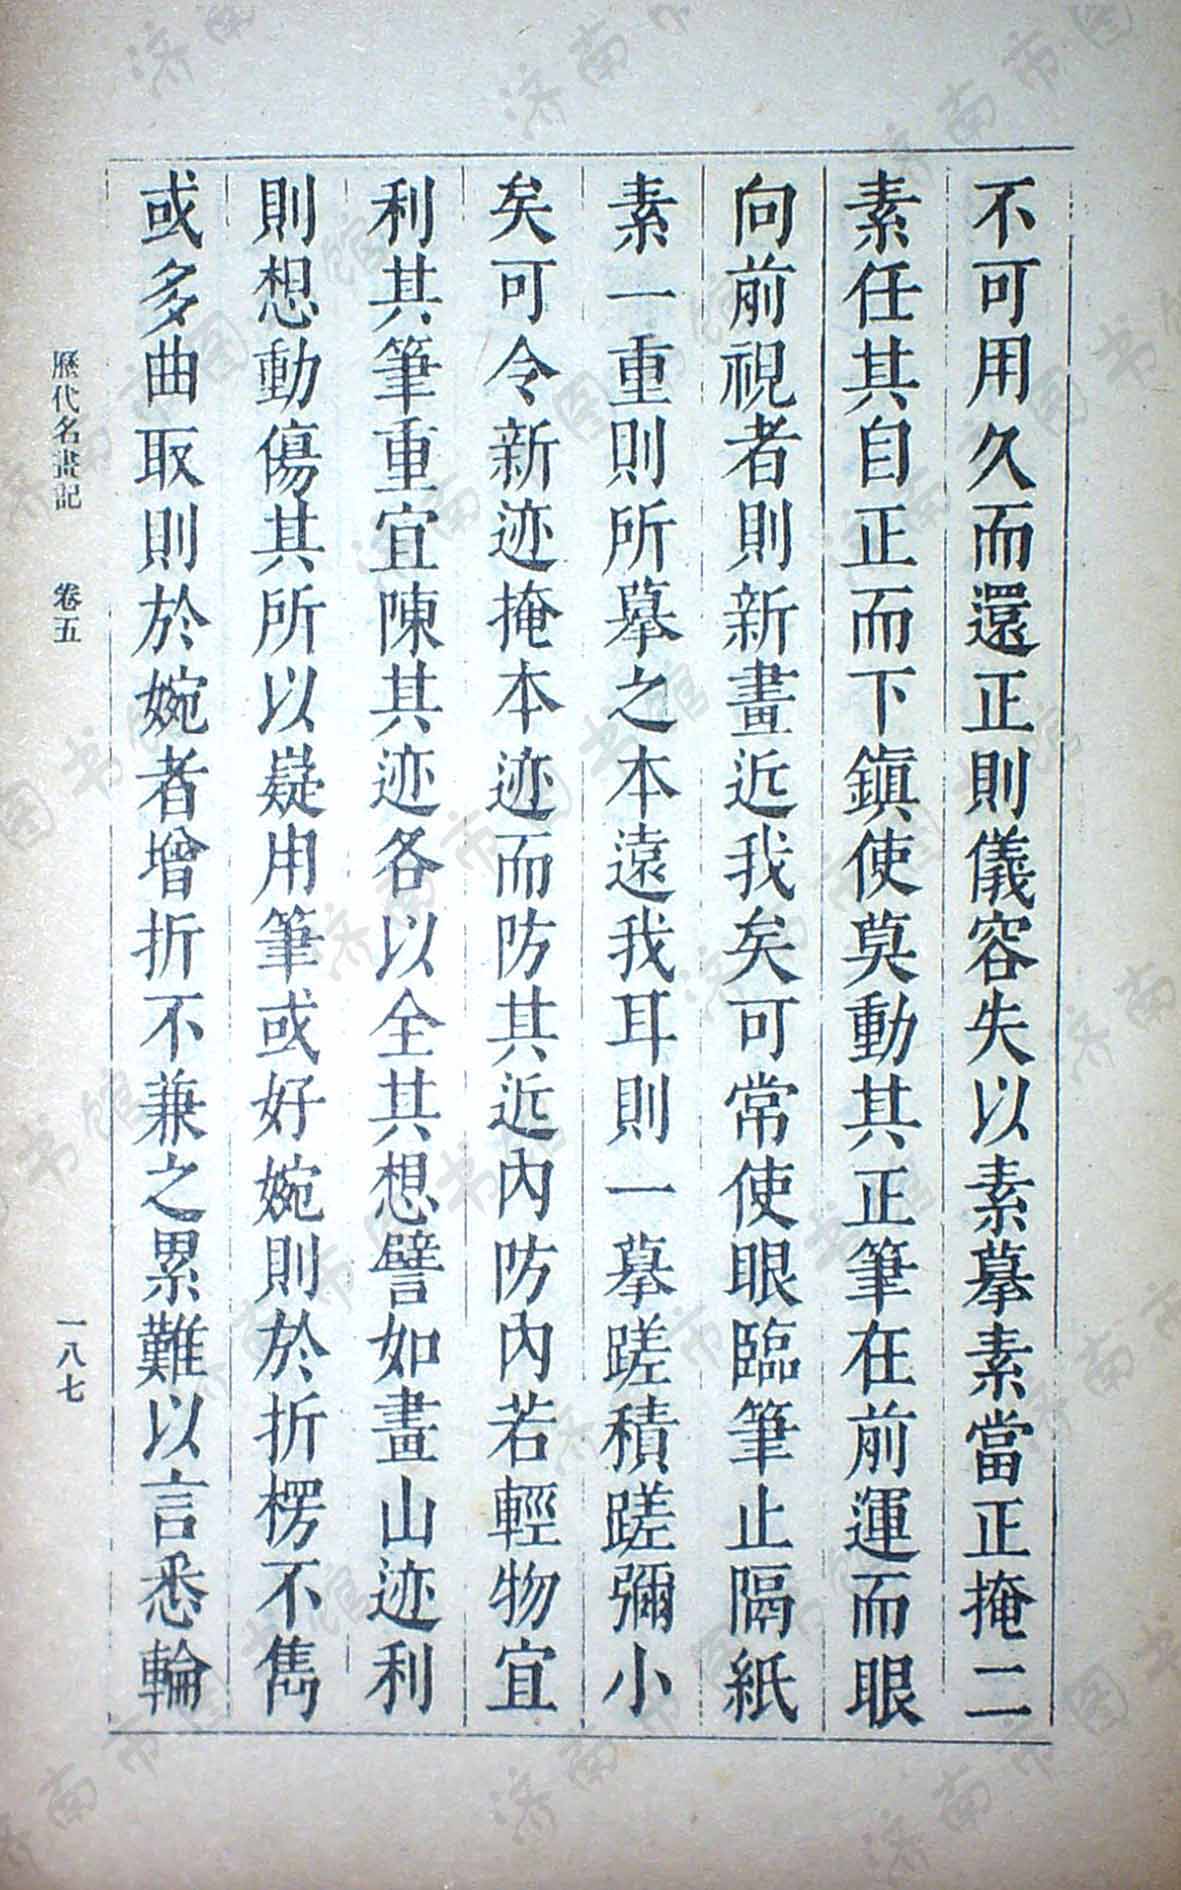 不可用久而還正則儀容失以素摹素當正掩二
素任其自正而下鎮使莫動其正筆在前運而眼
向前視者則新畫近我矣可常使眼臨筆止隔紙
素一重則所摹之本遠我耳則一摹蹉積蹉彌小
矣可令新迹掩本迹而防其近內防內若輕物宜
利其筆重宜陳其迹各以全其想譬如畫山迹利
則想動傷其所以嶷用筆或好婉則於折楞不雋
或多曲取則於婉者增折不兼之累難以言悉輪
歷代名畫記 卷五 一八七
济南市图书馆